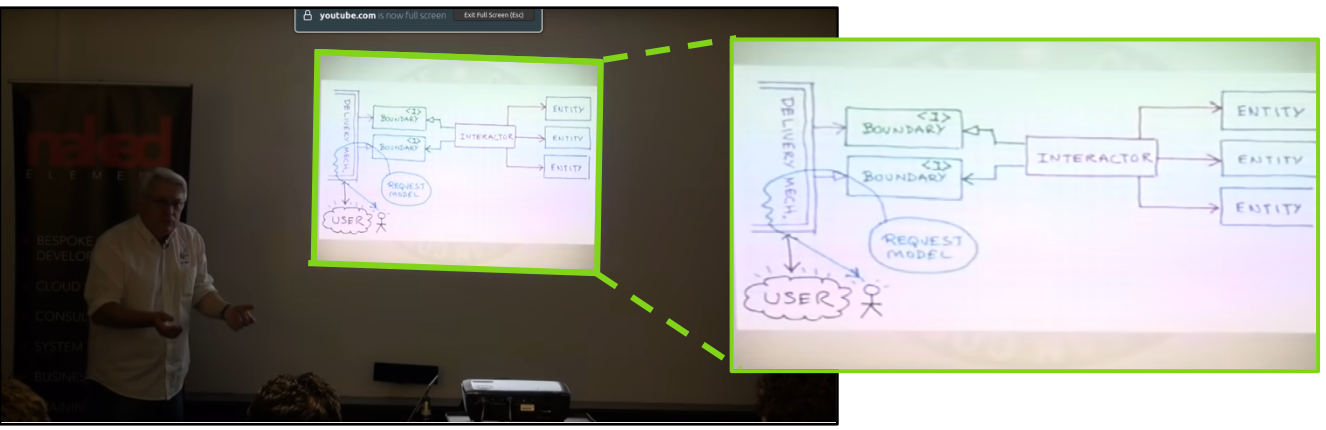 youtube.com is now full screen
Exit Full Screen (Esc)
naked
ELEME
BESPOKE
DEVELOP
CLOUD
CONSU
SYSTEM
BUSINE
DELIVERY MECH.
<I>
BOUNDARY
<I>
BOUNDARY
INTERACTOR
ENTITY
ENTITY
ENTITY
REQUEST
MODEL
USER
DELIVERY MECH.
<I>
BOUNDARY
<I>
BOUNDARY
INTERACTOR
ENTITY
ENTITY
ENTITY
REQUEST
MODEL
USER